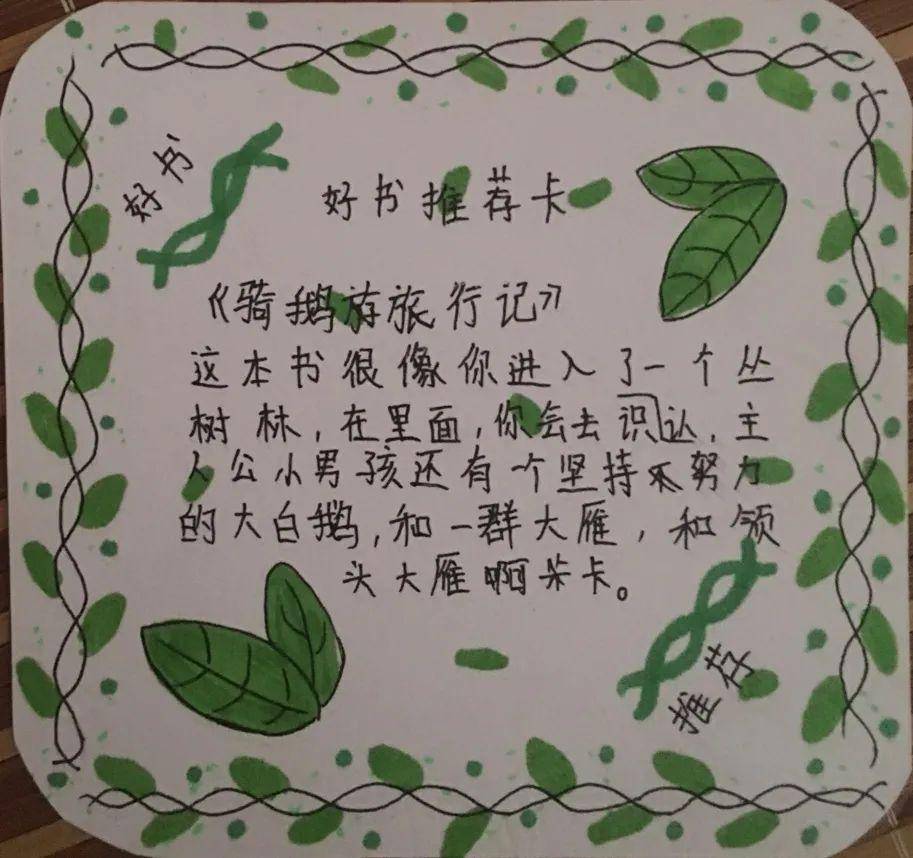 好书
好书推荐卡
《骑鹅游旅行记》
这本书很像你进入了一个丛
树林，在里面，你会去识认，主
人公小男孩还有一个坚持不努力
的大白鹅，和一群大雁，和领
头大雁啊朵卡。
推荐